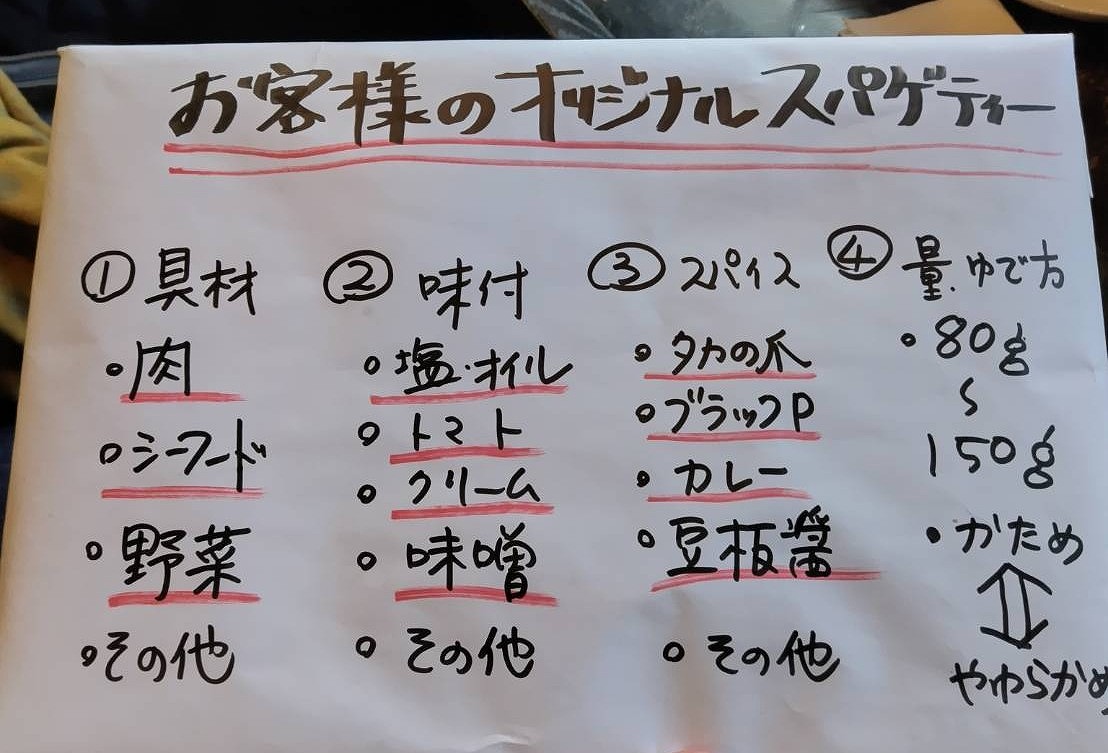 お客様のオリジナルスパゲティー
① 具材
・肉
・シーフード
・野菜
・その他
② 味付
・塩・オイル
・トマト
・クリーム
・味噌
・その他
③ スパイス
・タカの爪
・ブラックP
・カレー
・豆板醤
・その他
④ 量.ゆで方
・80g
〜
150g
・かため
⇕
やわらかめ